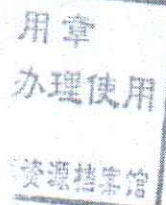 用章
办理使用
资源档案馆